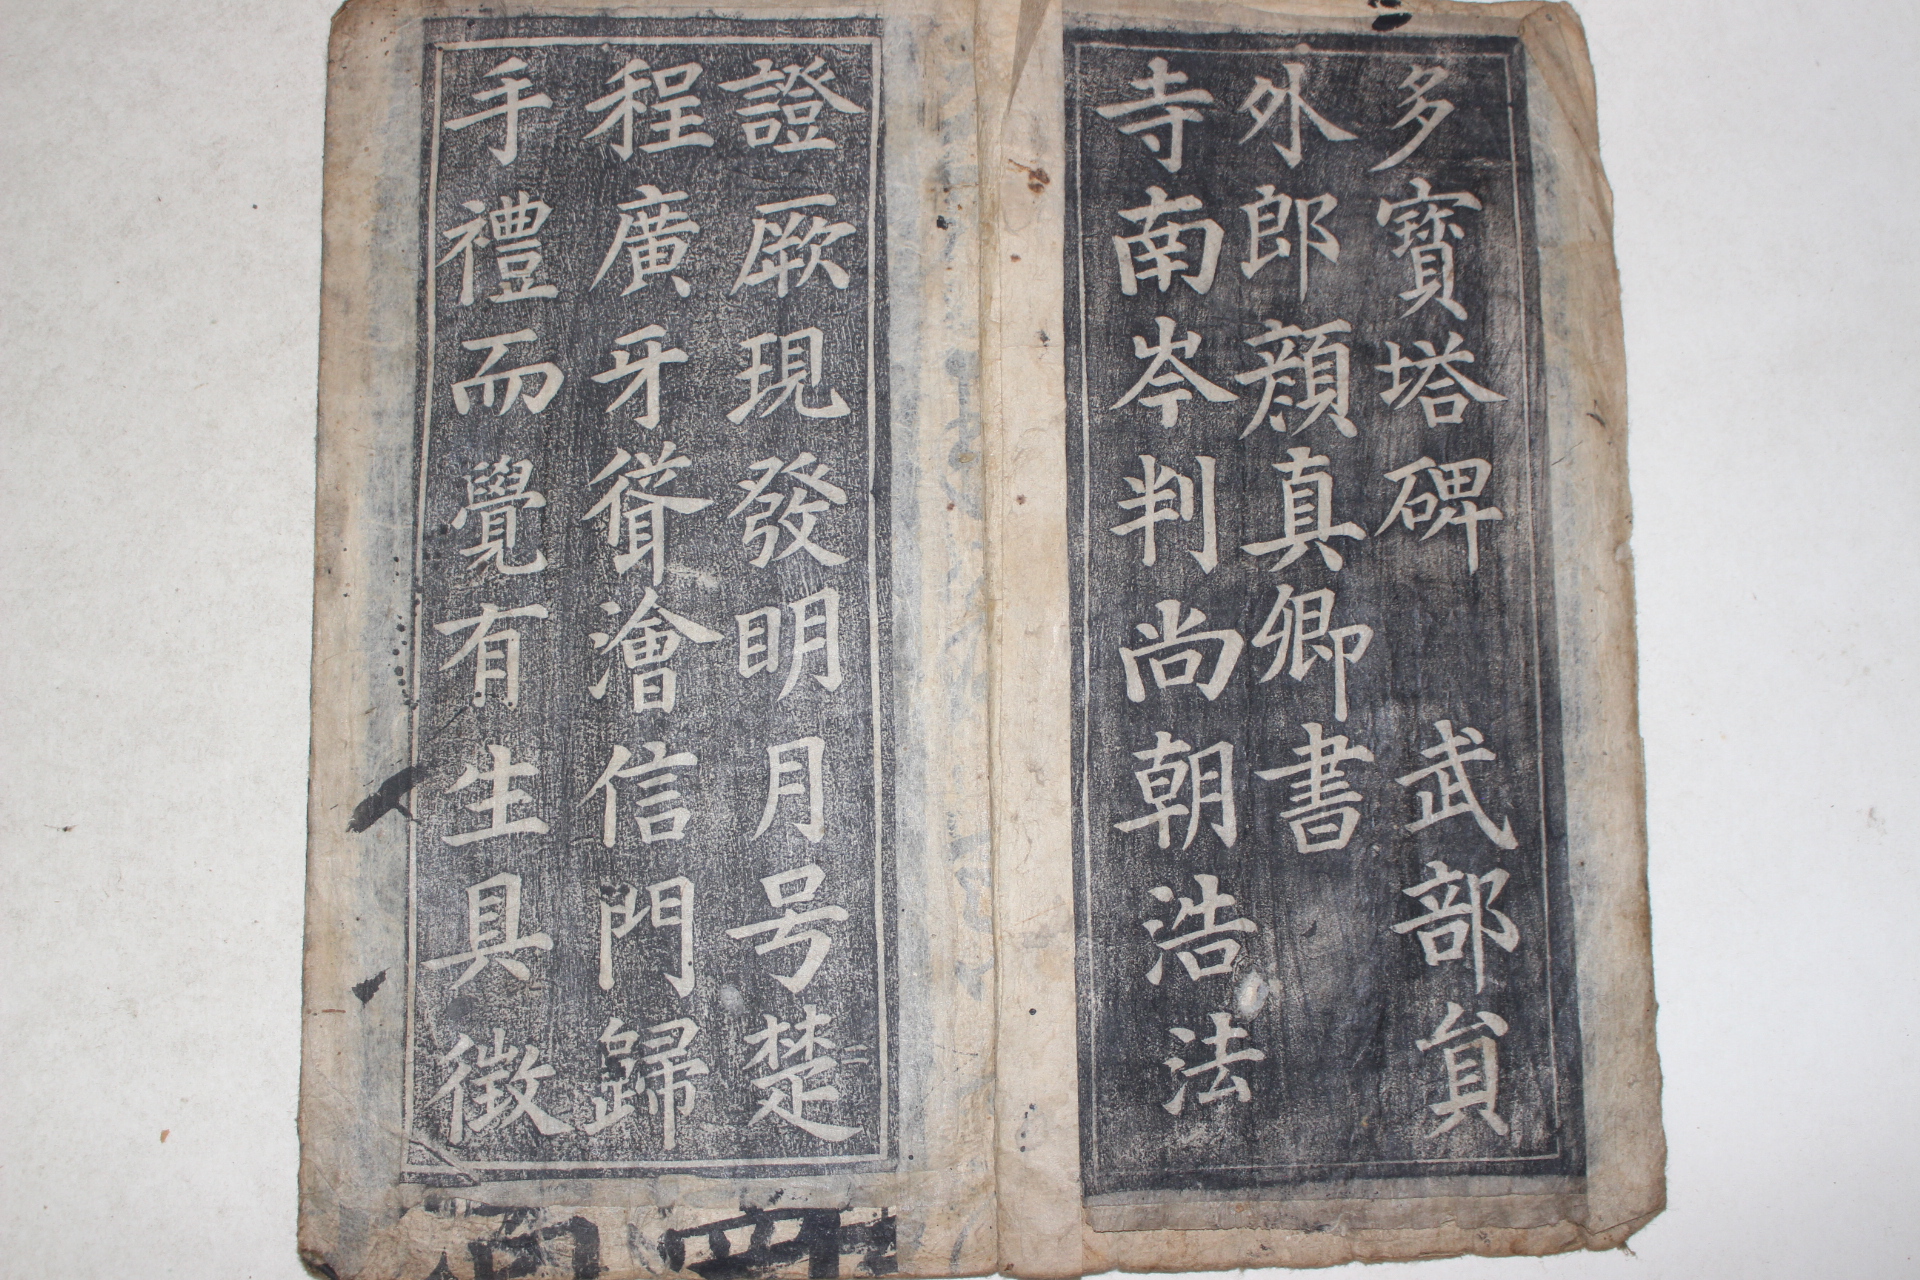 多寶塔碑 武部貟
外郎顔真卿書
寺南岑判尚朝浩法
證厥現發明月号楚
程廣牙聳澮信門歸
手禮而覺有生具徵
二